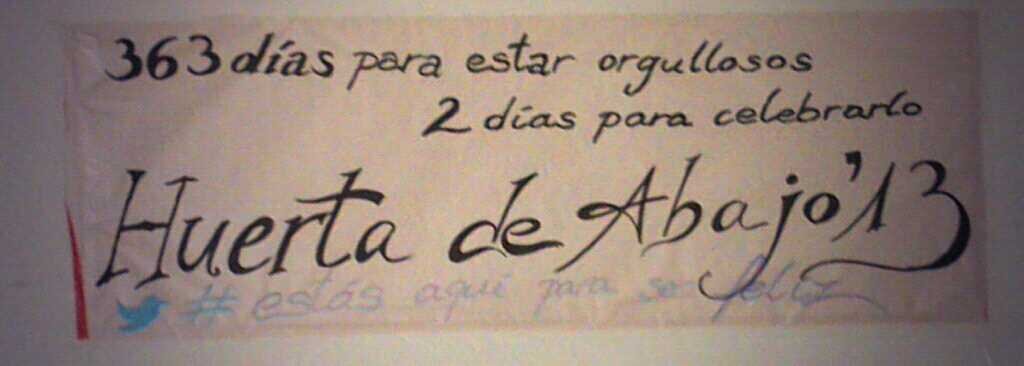 363 días para estar orgullosos
2 días para celebrarlo
Huerta de Abajo '13
#estás aquí para ser feliz